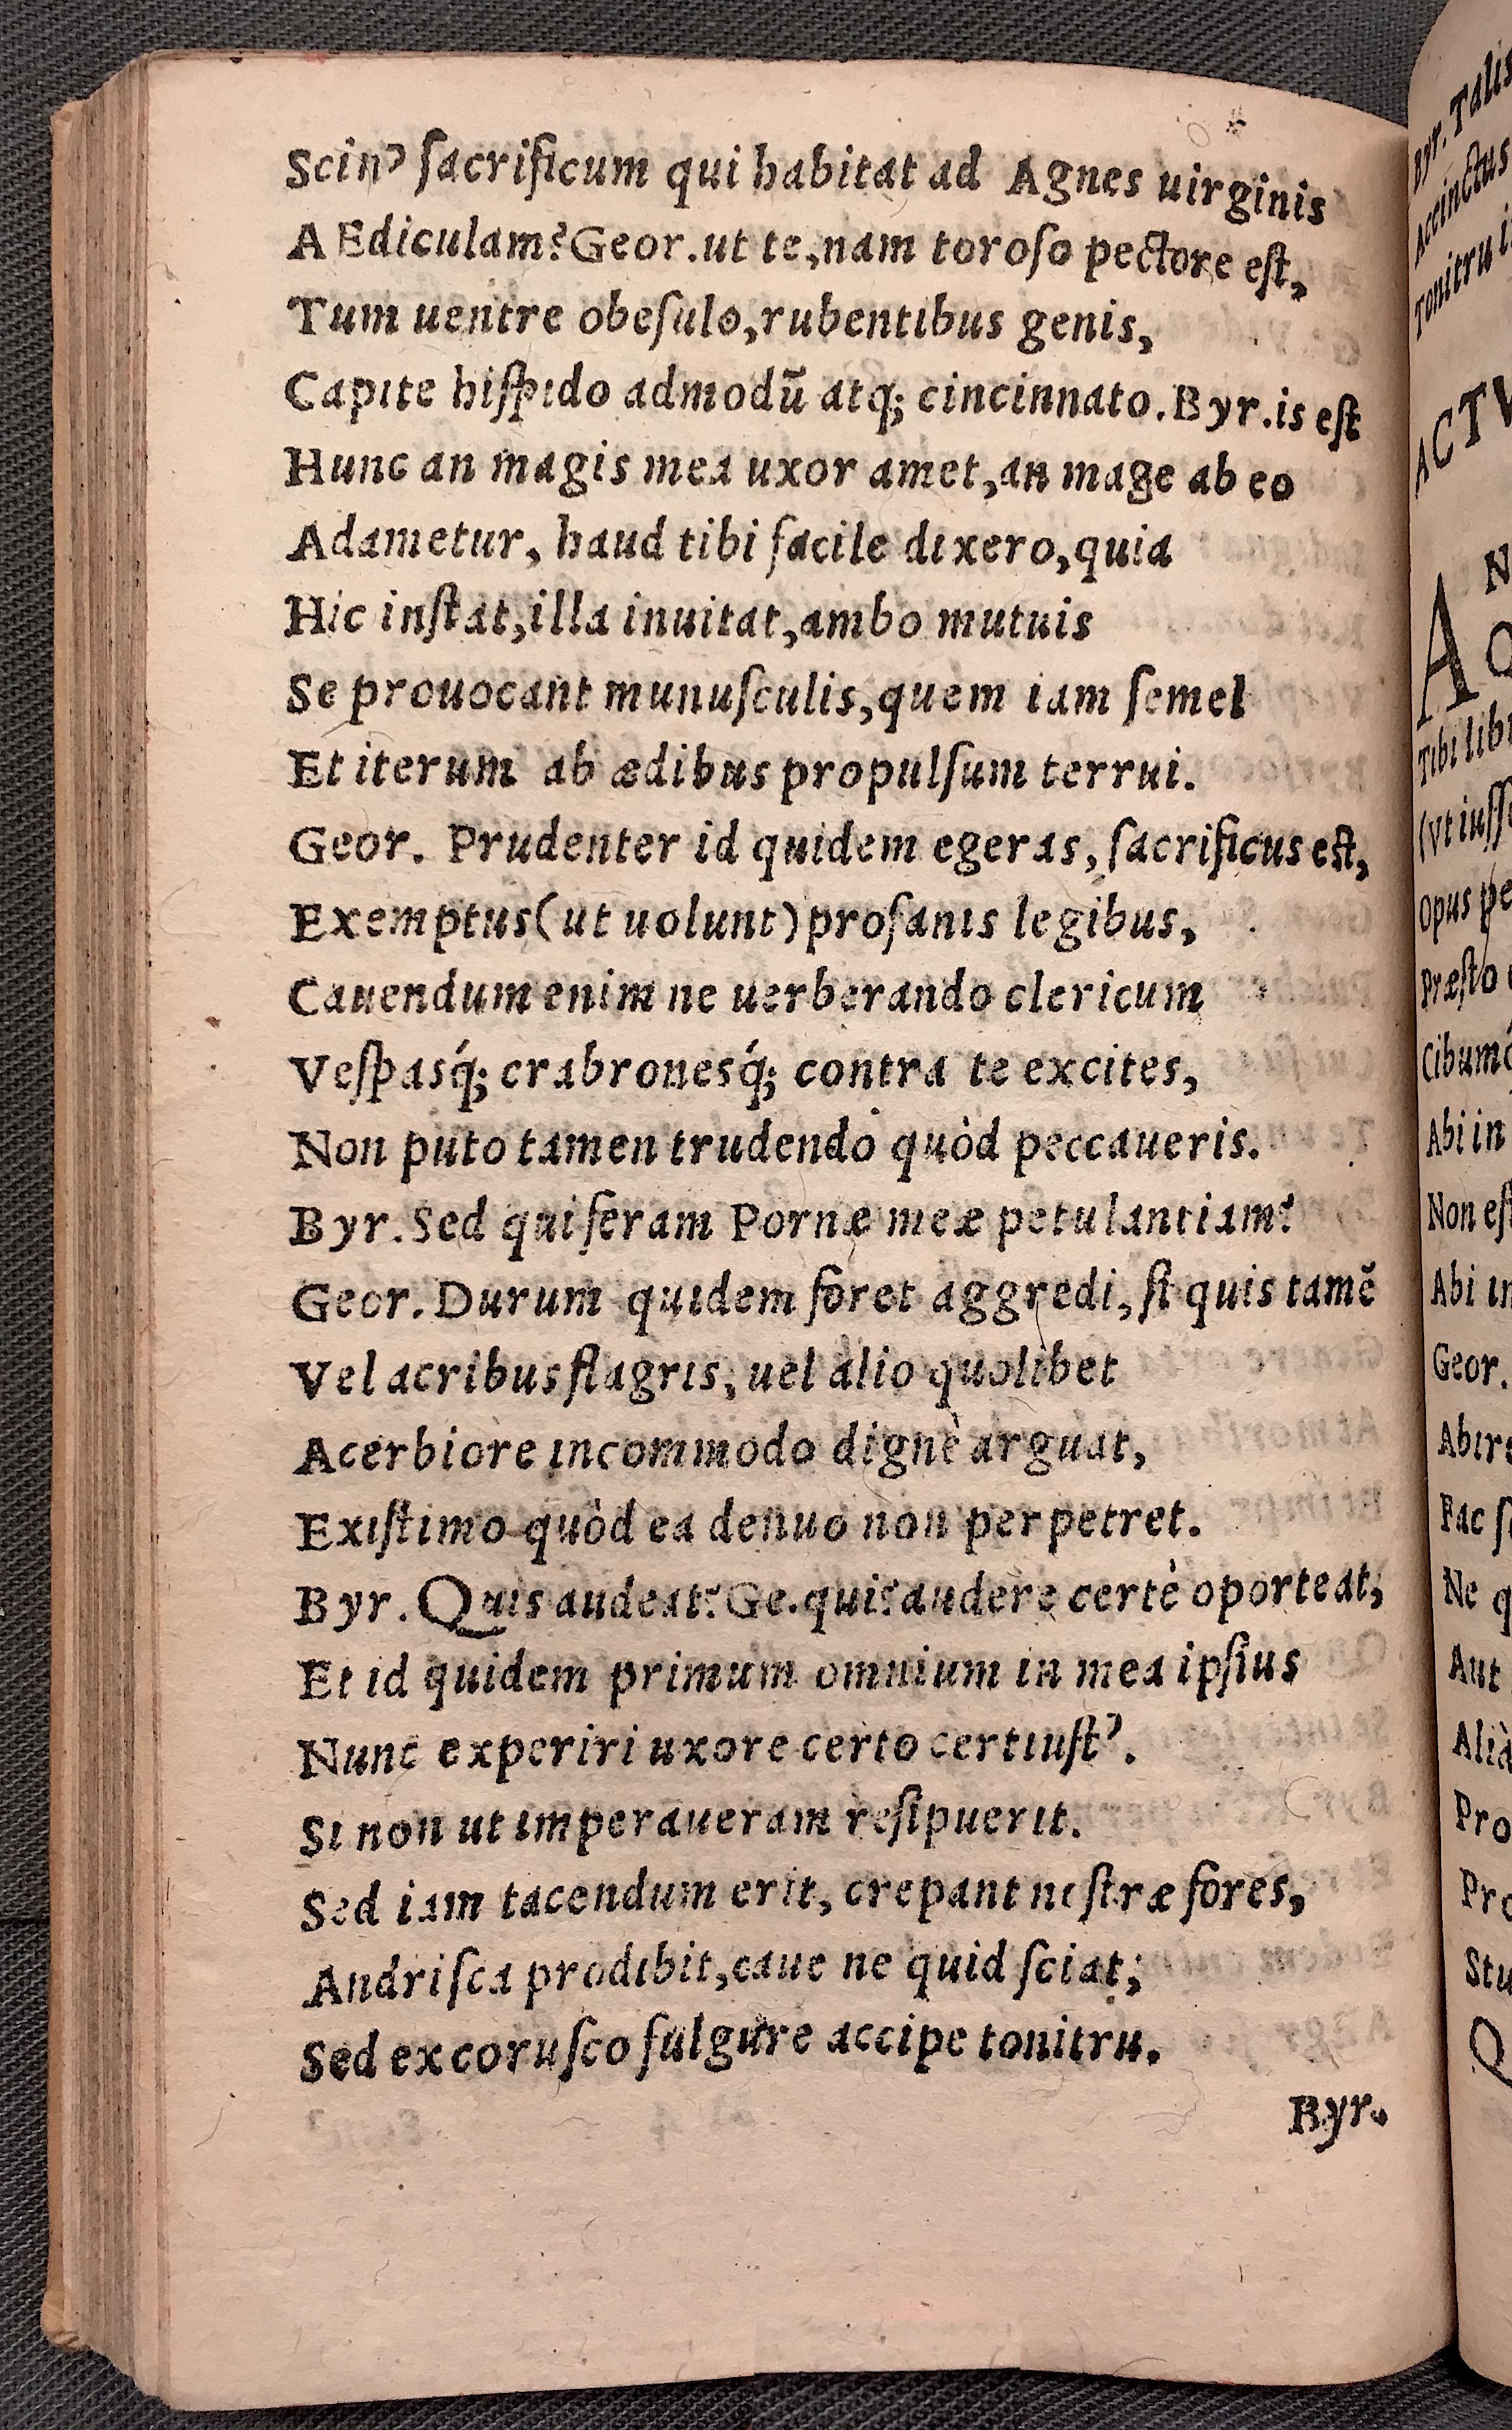 Scin' ſacrificum qui habitat ad Agnes uirginis
AEdiculam? Geor. ut te, nam toroſo pectore eſt,
Tum uentre obeſulo, rubentibus genis,
Capite hiſpido admodū atq; cincinnato. Byr. is eſt
Hunc an magis mea uxor amet, an mage ab eo
Adametur, haud tibi facile dixero, quia
Hic inſtat, illa inuitat, ambo mutuis
Se prouocant munuſculis, quem iam ſemel
Et iterum ab ædibus propulſum terrui.
Geor. Prudenter id quidem egeras, ſacrificus eſt,
Exemptus (ut uolunt) profanis legibus,
Cauendum enim ne uerberando clericum
Veſpasq́; crabronesq́; contra te excites,
Non puto tamen trudendo quòd peccaueris.
Byr. Sed qui feram Pornæ meæ petulantiam?
Geor. Durum quidem foret aggredi, ſi quis tamē
Vel acribus flagris, uel alio quolibet
Acerbiore incommodo dignè arguat,
Exiſtimo quòd ea denuo non perpetret.
Byr. Quis audeat? Ge. qui? audere certè oporteat,
Et id quidem primum omnium in mea ipſius
Nunc experiri uxore certo certiuſt'.
Si non ut imperaueram reſipuerit.
Sed iam tacendum erit, crepant noſtræ fores,
Andriſca prodibit, caue ne quid ſciat;
Sed ex coruſco fulgure accipe tonitru.
Byr.
Byr. Talis
Accinctus
Tonitru i
ACTV
AN
Tibi libr
(Vt iuſſ
Opus pe
Præſto
Cibum
Abi in
Non eſt
Abi in
Geor.
Abire
Fac
Ne q
Aut
Alià
Pro
Pro
Stu
Q